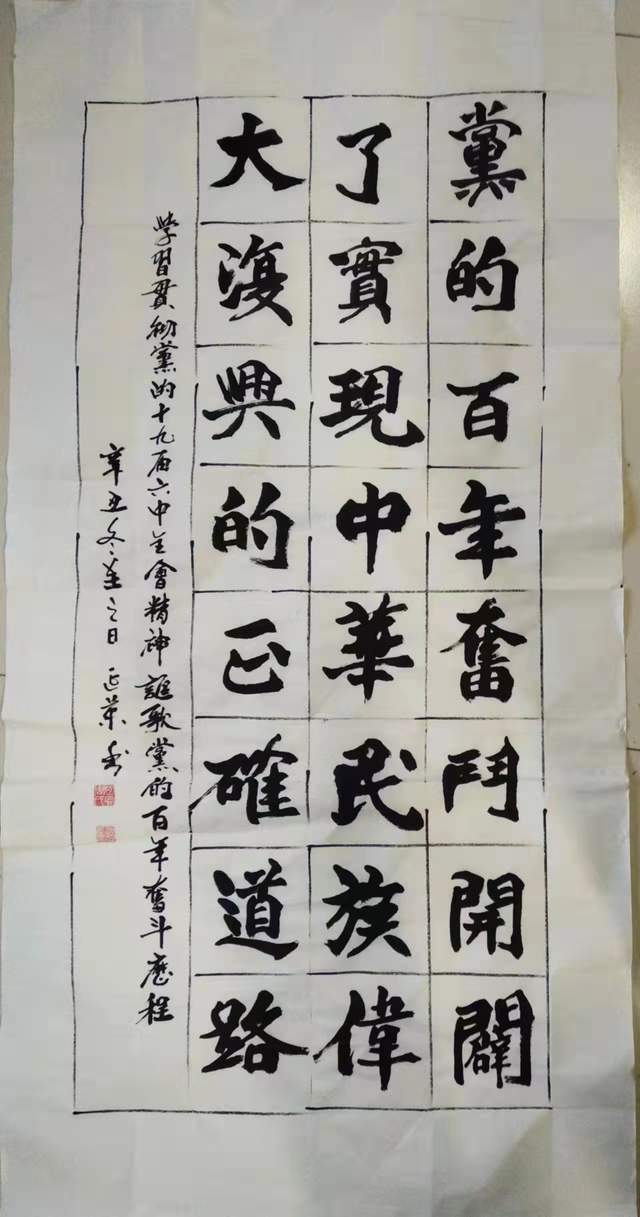 黨的百年奮鬥開闢
了實現中華民族偉
大復興的正確道路
学習貫彻黨的十九届六中全會精神 謳歌黨的百年奮斗歷程
辛丑冬至之日 正荣书